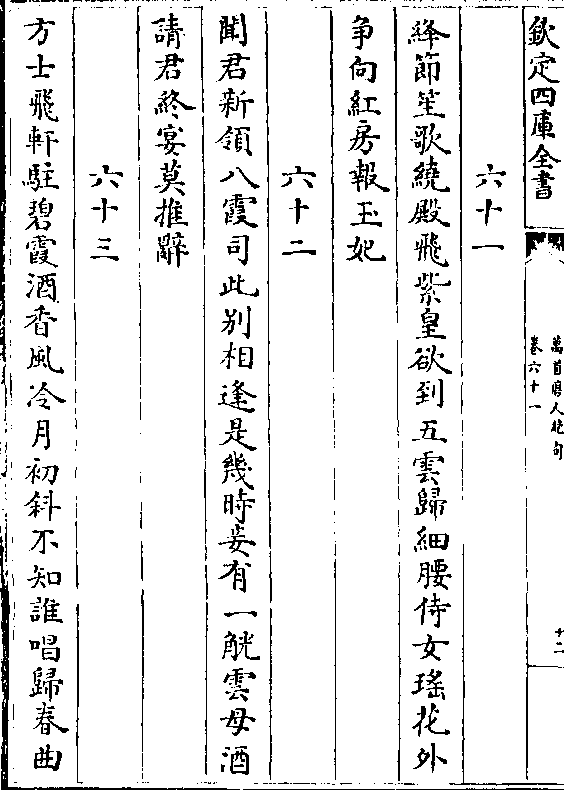 欽定四庫全書
萬首唐人絶句
卷六十一
十二
六十一
絳節笙歌繞殿飛紫皇欲到五雲歸細腰侍女瑤花外
争向紅房報玉妃
六十二
聞君新領八霞司此别相逢是幾時妾有一觥雲母酒
請君終宴莫推辭
六十三
方士飛軒駐碧霞酒香風冷月初斜不知誰唱歸春曲